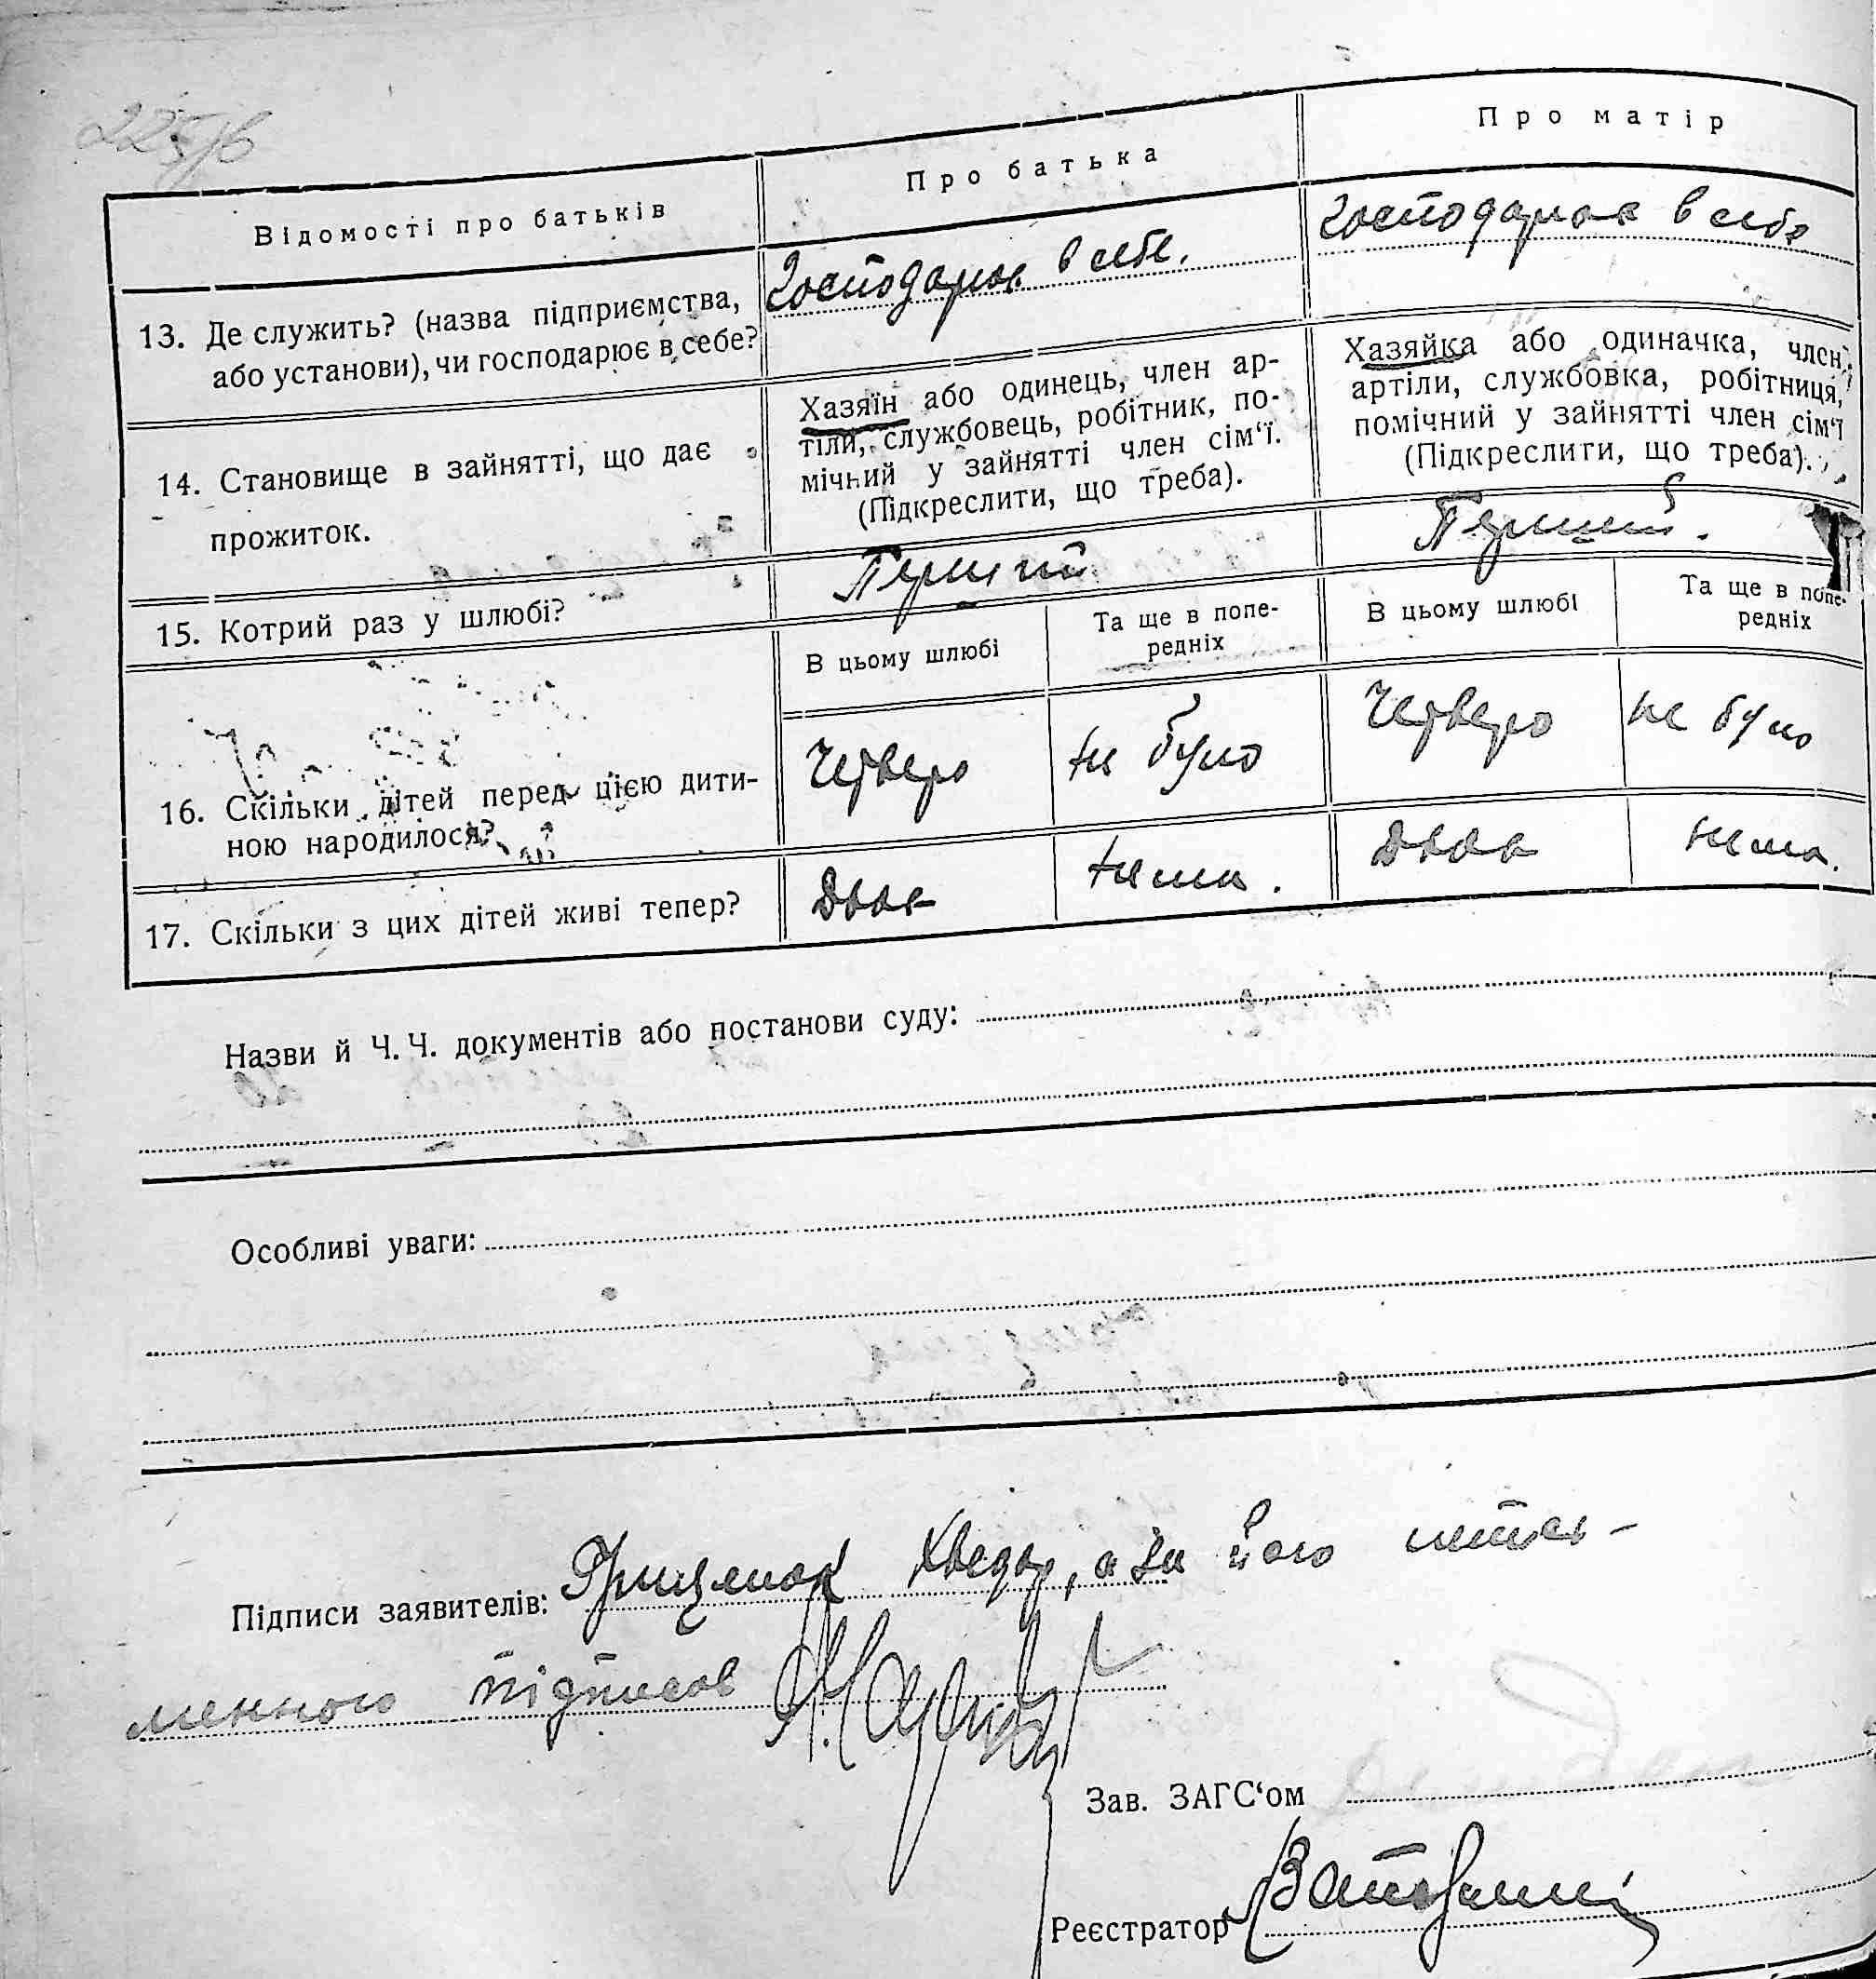 225/в
Відомості про батьків
Про батька
Про матір
13. Де служить? (назва підприємства,
або установи), чи господарює в себе?
Господарює в себе.
Господарює в себе
14. Становище в зайнятті, що дає
прожиток.
Хазяїн або одинець, член ар-
тіли, службовець, робітник, по-
мічний у зайнятті член сім‘ї.
(Підкреслити, що треба).
Хазяйка або одиначка, член
артіли, службовка, робітниця,
помічний у зайнятті член сім‘ї
(Підкреслити, що треба).
15. Котрий раз у шлюбі?
Перший
Перший.
В цьому шлюбі
Та ще в попе-
редніх
В цьому шлюбі
Та ще в попе-
редніх
16. Скільки дітей перед цією дити-
ною народилося?
Четверо
не було
Четверо
не було
17. Скільки з цих дітей живі тепер?
Двоє
нема.
Двоє
нема.
Назви й Ч. Ч. документів або постанови суду:
Особливі уваги:
Підписи заявителів: Грицюк Хведор, а за його непись-
менного підписав
Зав. ЗАГС‘ом
Реєстратор